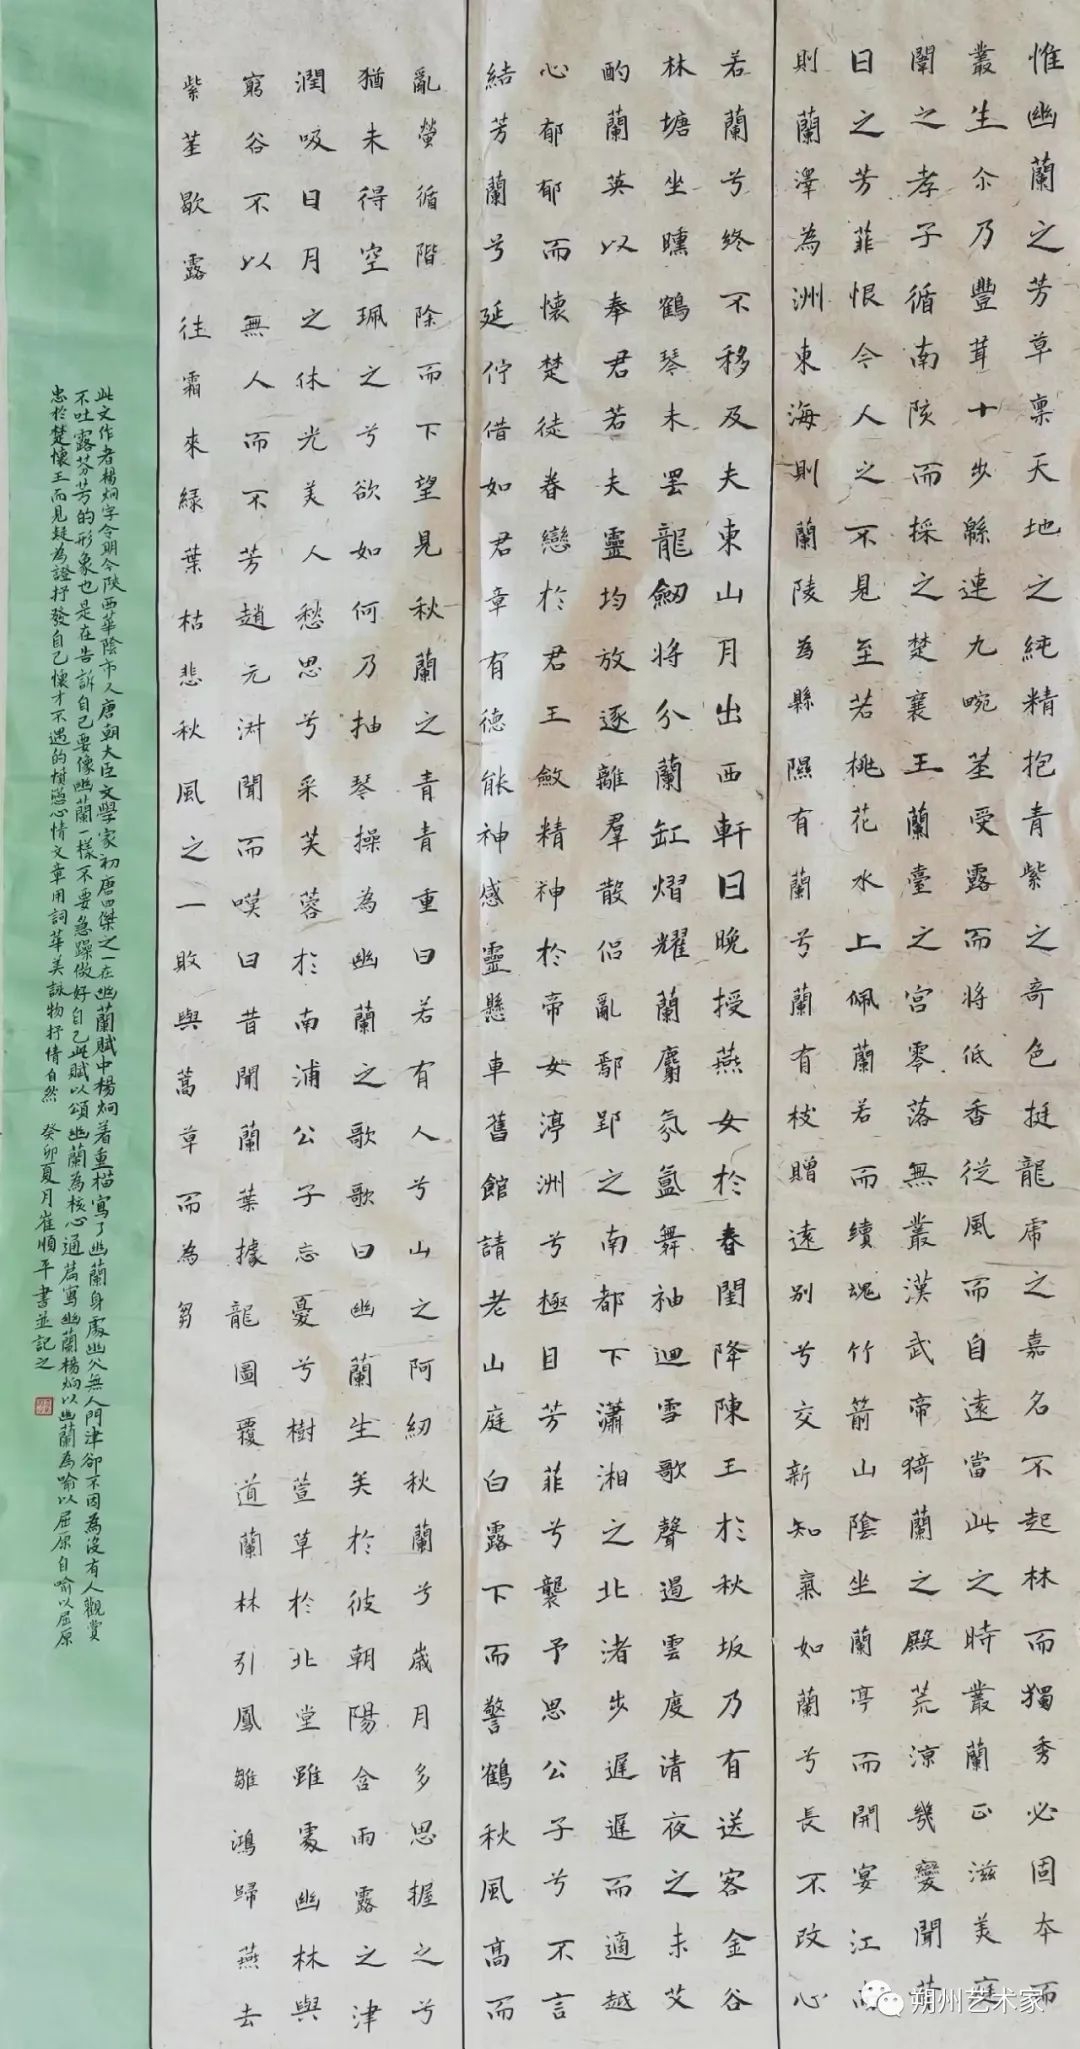 惟幽蘭之芳草稟天地之純精抱青紫之奇色挺龍虎之嘉名不起林而獨秀必固本而
叢生尒乃豐茸十步緜連九畹莖受露而將低香從風而自遠當此之時叢蘭正滋美庭
闈之孝子循南陔而採之楚襄王蘭臺之宮零落無叢漢武帝猗蘭之殿荒涼幾變聞昔
日之芳菲恨今人之不見至若桃花水上佩蘭若而續魂竹箭山陰坐蘭亭而開宴江南
則蘭澤為洲東海則蘭陵為縣隰有蘭兮蘭有枝贈遠別兮交新知氣如蘭兮長不改心
若蘭兮終不移及夫東山月出西軒日晚授燕女於春閨降陳王於秋坂乃有送客金谷
林塘坐曛鶴琴未罷龍劒將分蘭缸熠耀蘭麝氛氳舞袖迴雪歌聲遏雲度清夜之未艾
酌蘭英以奉君若夫靈均放逐離羣散侶亂鄢郢之南都下瀟湘之北渚步遲遲而適越
心郁郁而懷楚徒眷戀於君王斂精神於帝女渟洲兮極目芳菲兮襲予思公子兮不言
結芳蘭兮延佇借如君章有德能神感靈懸車舊館請老山庭白露下而警鶴秋風高而
亂螢循階除而下望見秋蘭之青青重曰若有人兮山之阿紉秋蘭兮歲月多思握之兮
猶未得空珮之兮欲如何乃抽琴操為幽蘭之歌歌曰幽蘭生矣於彼朝陽含雨露之津
潤吸日月之休光美人愁思兮采芙蓉於南浦公子忘憂兮樹萱草於北堂雖處幽林與
窮谷不以無人而不芳趙元淑聞而嘆曰昔聞蘭葉據龍圖覆道蘭林引鳳雛鴻歸燕去
紫莖歇露往霜來綠葉枯悲秋風之一敗與蒿草而為芻
此文作者楊炯字令明今陝西華陰市人唐朝大臣文學家初唐四傑之一在幽蘭賦中楊炯着重描寫了幽蘭身處幽谷無人門津卻不因為沒有人觀賞
不吐露芬芳的形象也是在告訴自己要像幽蘭一樣不要急躁做好自己此賦以頌幽蘭為核心通篇寫幽蘭楊炯以幽蘭為喻以屈原自喻以屈原
忠於楚懷王而見疑為證抒發自己懷才不遇的憤懣心情文章用詞華美詠物抒情自然 癸卯夏月崔順平書並記之
朔州艺术家